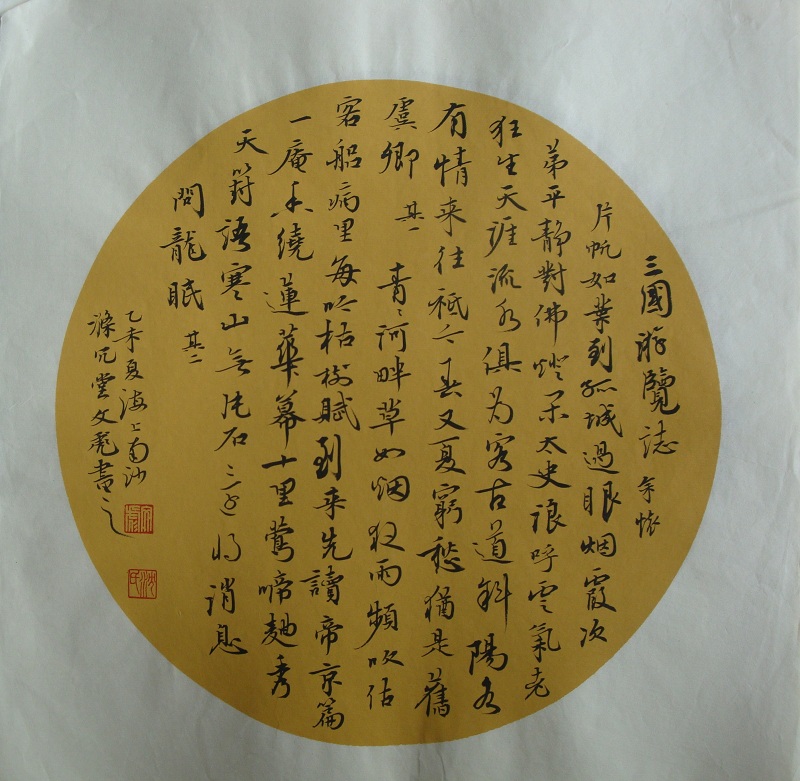 三國游覽誌 余懷
片帆如葉到孤城過眼烟霞次
第平靜對佛燈呆太史浪呼雲氣老
狂生天涯流水俱為客古道斜陽各
有情来往祗今春又夏窮愁猶是舊
虞卿 其一 青〻河畔草如烟夜雨頻吹估
客船病里每吟枯樹賦到来先讀帝京篇
一庵香繞蓮華幕十里鶯啼麯秀
天 語寒山無片石三 將消息
問龍眠 其二
乙未夏海上南沙
滌冗堂文彪書之